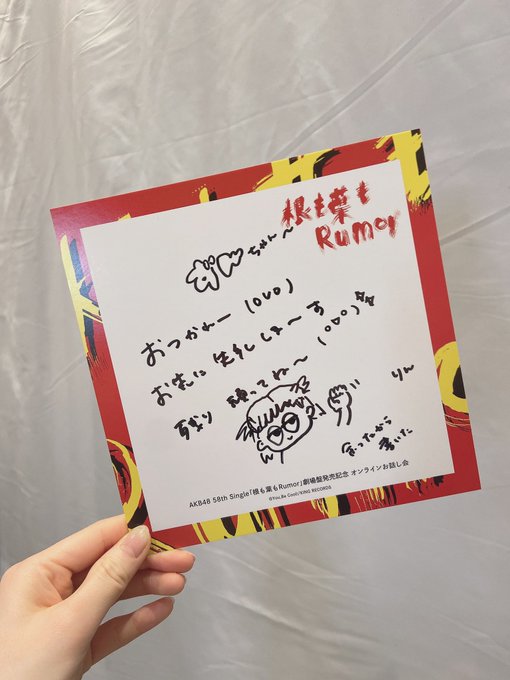 根も葉も
Rumor
ちゃん〜
おつかれー(ovo)
お先に失礼しま〜す
残り 頑ってね〜 (ovo)
りん
余ったから
書いた
AKB48 58th Single「根も葉もRumor」劇場盤発売記念 オンラインお話し会
©You, Be Cool!/KING RECORDS